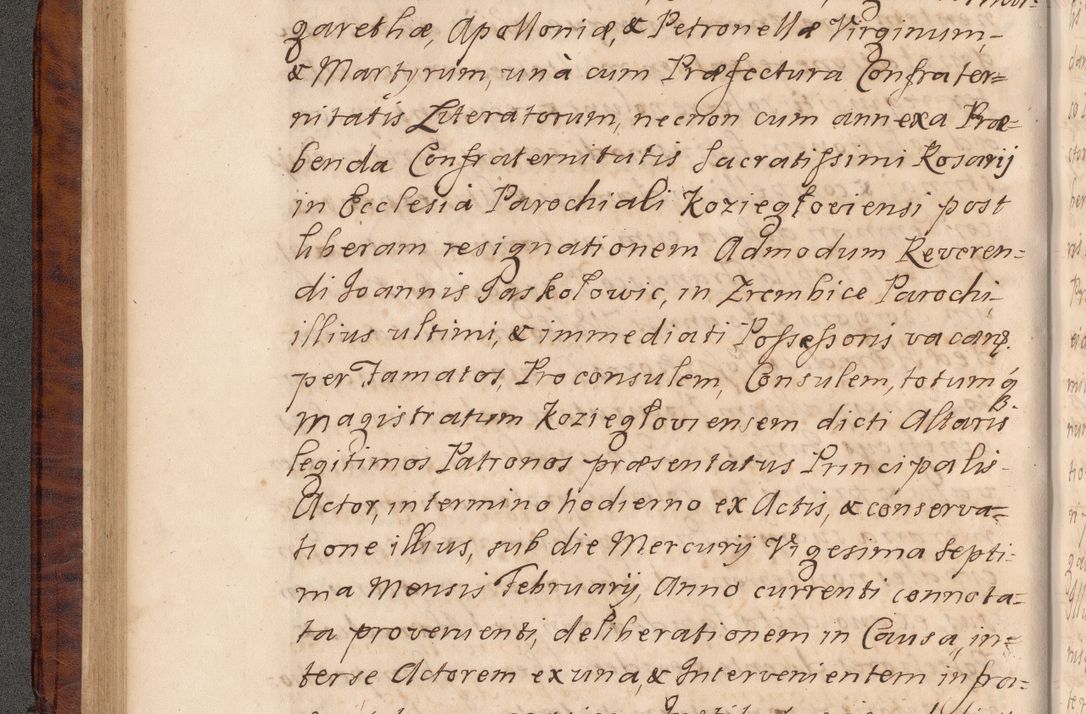 garethæ, Apolloniæ, & Petronellæ Virginum,
& Martyrum, unà cum Præfectura Confrater=
nitatis Literatorum, necnon cum annexa Præ=
benda Confraternitatis Sacratissimi Rosarij
in Ecclesia Parochiali Koziegłoviensi post
liberam resignationem Admodum Reveren=
di Joannis Paskołowic, in Zrembice Parochi
illius ultimi, & immediati Possessoris vacans
per Famatos, Proconsulem, Consulem, totumq́
Magistratum Koziegłoviensem dicti Altaris
legitimos Patronos præsentatus Principalis
Actor, in termino hodierno ex Actis, & conserva=
tione illius, sub die Mercurij Vigesima Septi-
ma Mensis Februarij, Anno currenti connota=
ta provenienti, deliberationem in Causa, in=
terse Actorem ex una, & Intervenientem infra=